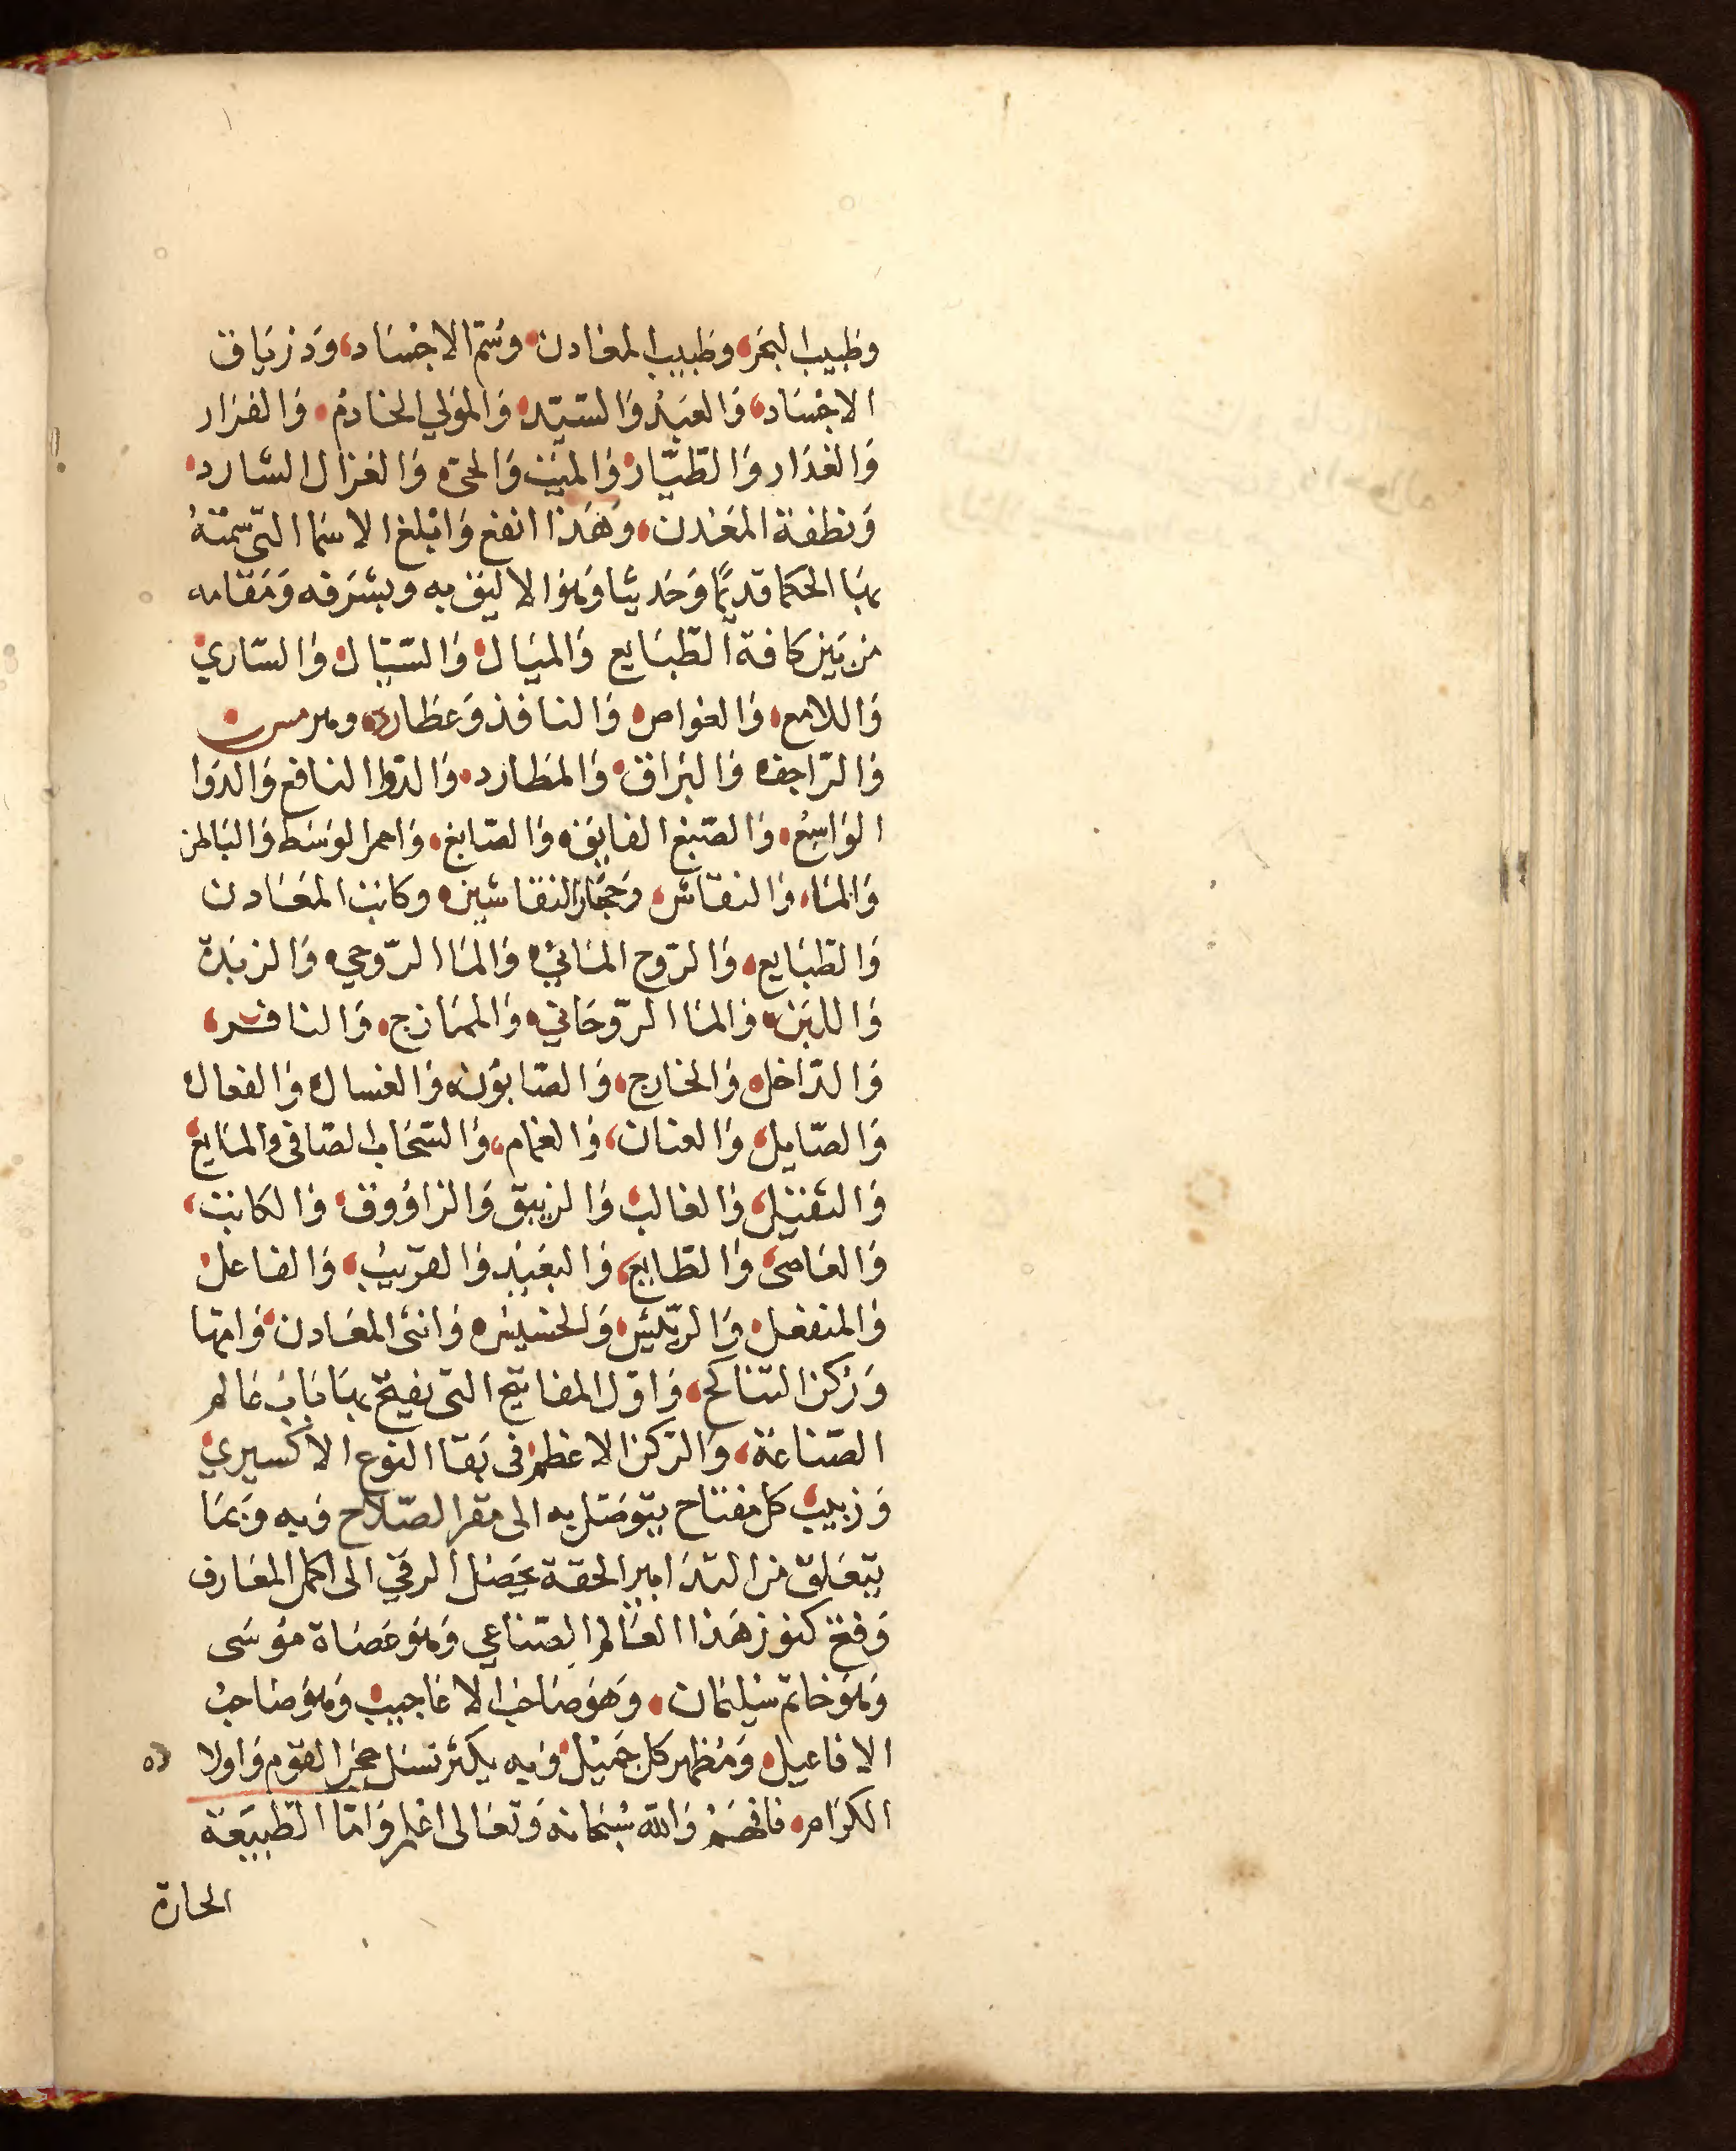 وطبيب البحر وطبيب المعادن وسُمّ الاجسَاد وَدِرْيَاق
الاجسَاد وَالعَبْدُ وَالسّيّد وَالموَلي الخادمُ وَالفرَار
وَالغدَار وَالطّيَّار وَالميّت وَالحىّ وَالغزال الشارد
وَنطفة المعَدن وهَذا انفع وَابْلغ الاسمَا التى سمّتهُ
بهَا الحكما قديمًا وَحَديثًا وَهوَ الاليَق به وبشَرفه وَمَقامه
من بَين كافة الطّبَايع وَالميَال وَالسّيّال وَالسّاري
وَاللامع وَالغواص وَالنافذ وَعطارد وهرمس
وَالرّاجف وَالبَراق وَالمطارد وَالدّوا النافع وَالدَوا
الوَاسِعُ وَالصّبغ الفايق وَالصّابغ وَاحمر الوَسَط وَالبَاطن
وَالمَاء وَالنقاش وَحجَار النقاشين وكاتب المعَادن
وَالطبَايع وَالرّوح المَائيّ وَالمَا الرّوحي وَالزبَدة
وَاللبَن وَالمَا الرّوحَاني وَالممَازج وَالنافر
وَالدّاخل وَالخارج وَالصّابوُن وَالغسال وَالفعال
وَالصّايل وَالعنان وَالغمام وَالسّحَاب الصّافى وَالمَايع
وَالثقيل وَالغالب وَالزيبق وَالزاؤوق وَالكاتب
وَالعَاصى وَالطايع وَالبَعَيْد وَالقرَيبُ وَالفاعل
وَالمنفعل وَالرّئيس وَالخسيس وَانثى المعَادن وَامّها
وَرُكن التناكح وَاوّل المفاتيح التى يفتح بهَا بَابُ عَالم
الصّناعَة وَالرّكن الاعظم فى بَقا النوع الاكسيري
وَزبيب كل مفتاح يتوَصّل به الى مقر الصّلاح وَبه وَبمَا
يتعَلق من التدَابير الحقة يحَصْل الرقي الى اكمل المعَارف
وَفتح كنوز هَذا العَالم الصّناعي وَهوَ عَصَاة موُسَى
وَهوَ خاتم سُليمَان وَهوَ صَاحبُ الاعَاجيب وَهوَ صَاحبُ
الافاعيل وَمُظهر كل جَميْل وَبه يكثر نسَل حجرَ القوم وَاولاد
الكرَام فافهَمْ وَالله سُبْحَانه وَتعَالى اعْلم وَامّا الطّبيعَة
الحارة